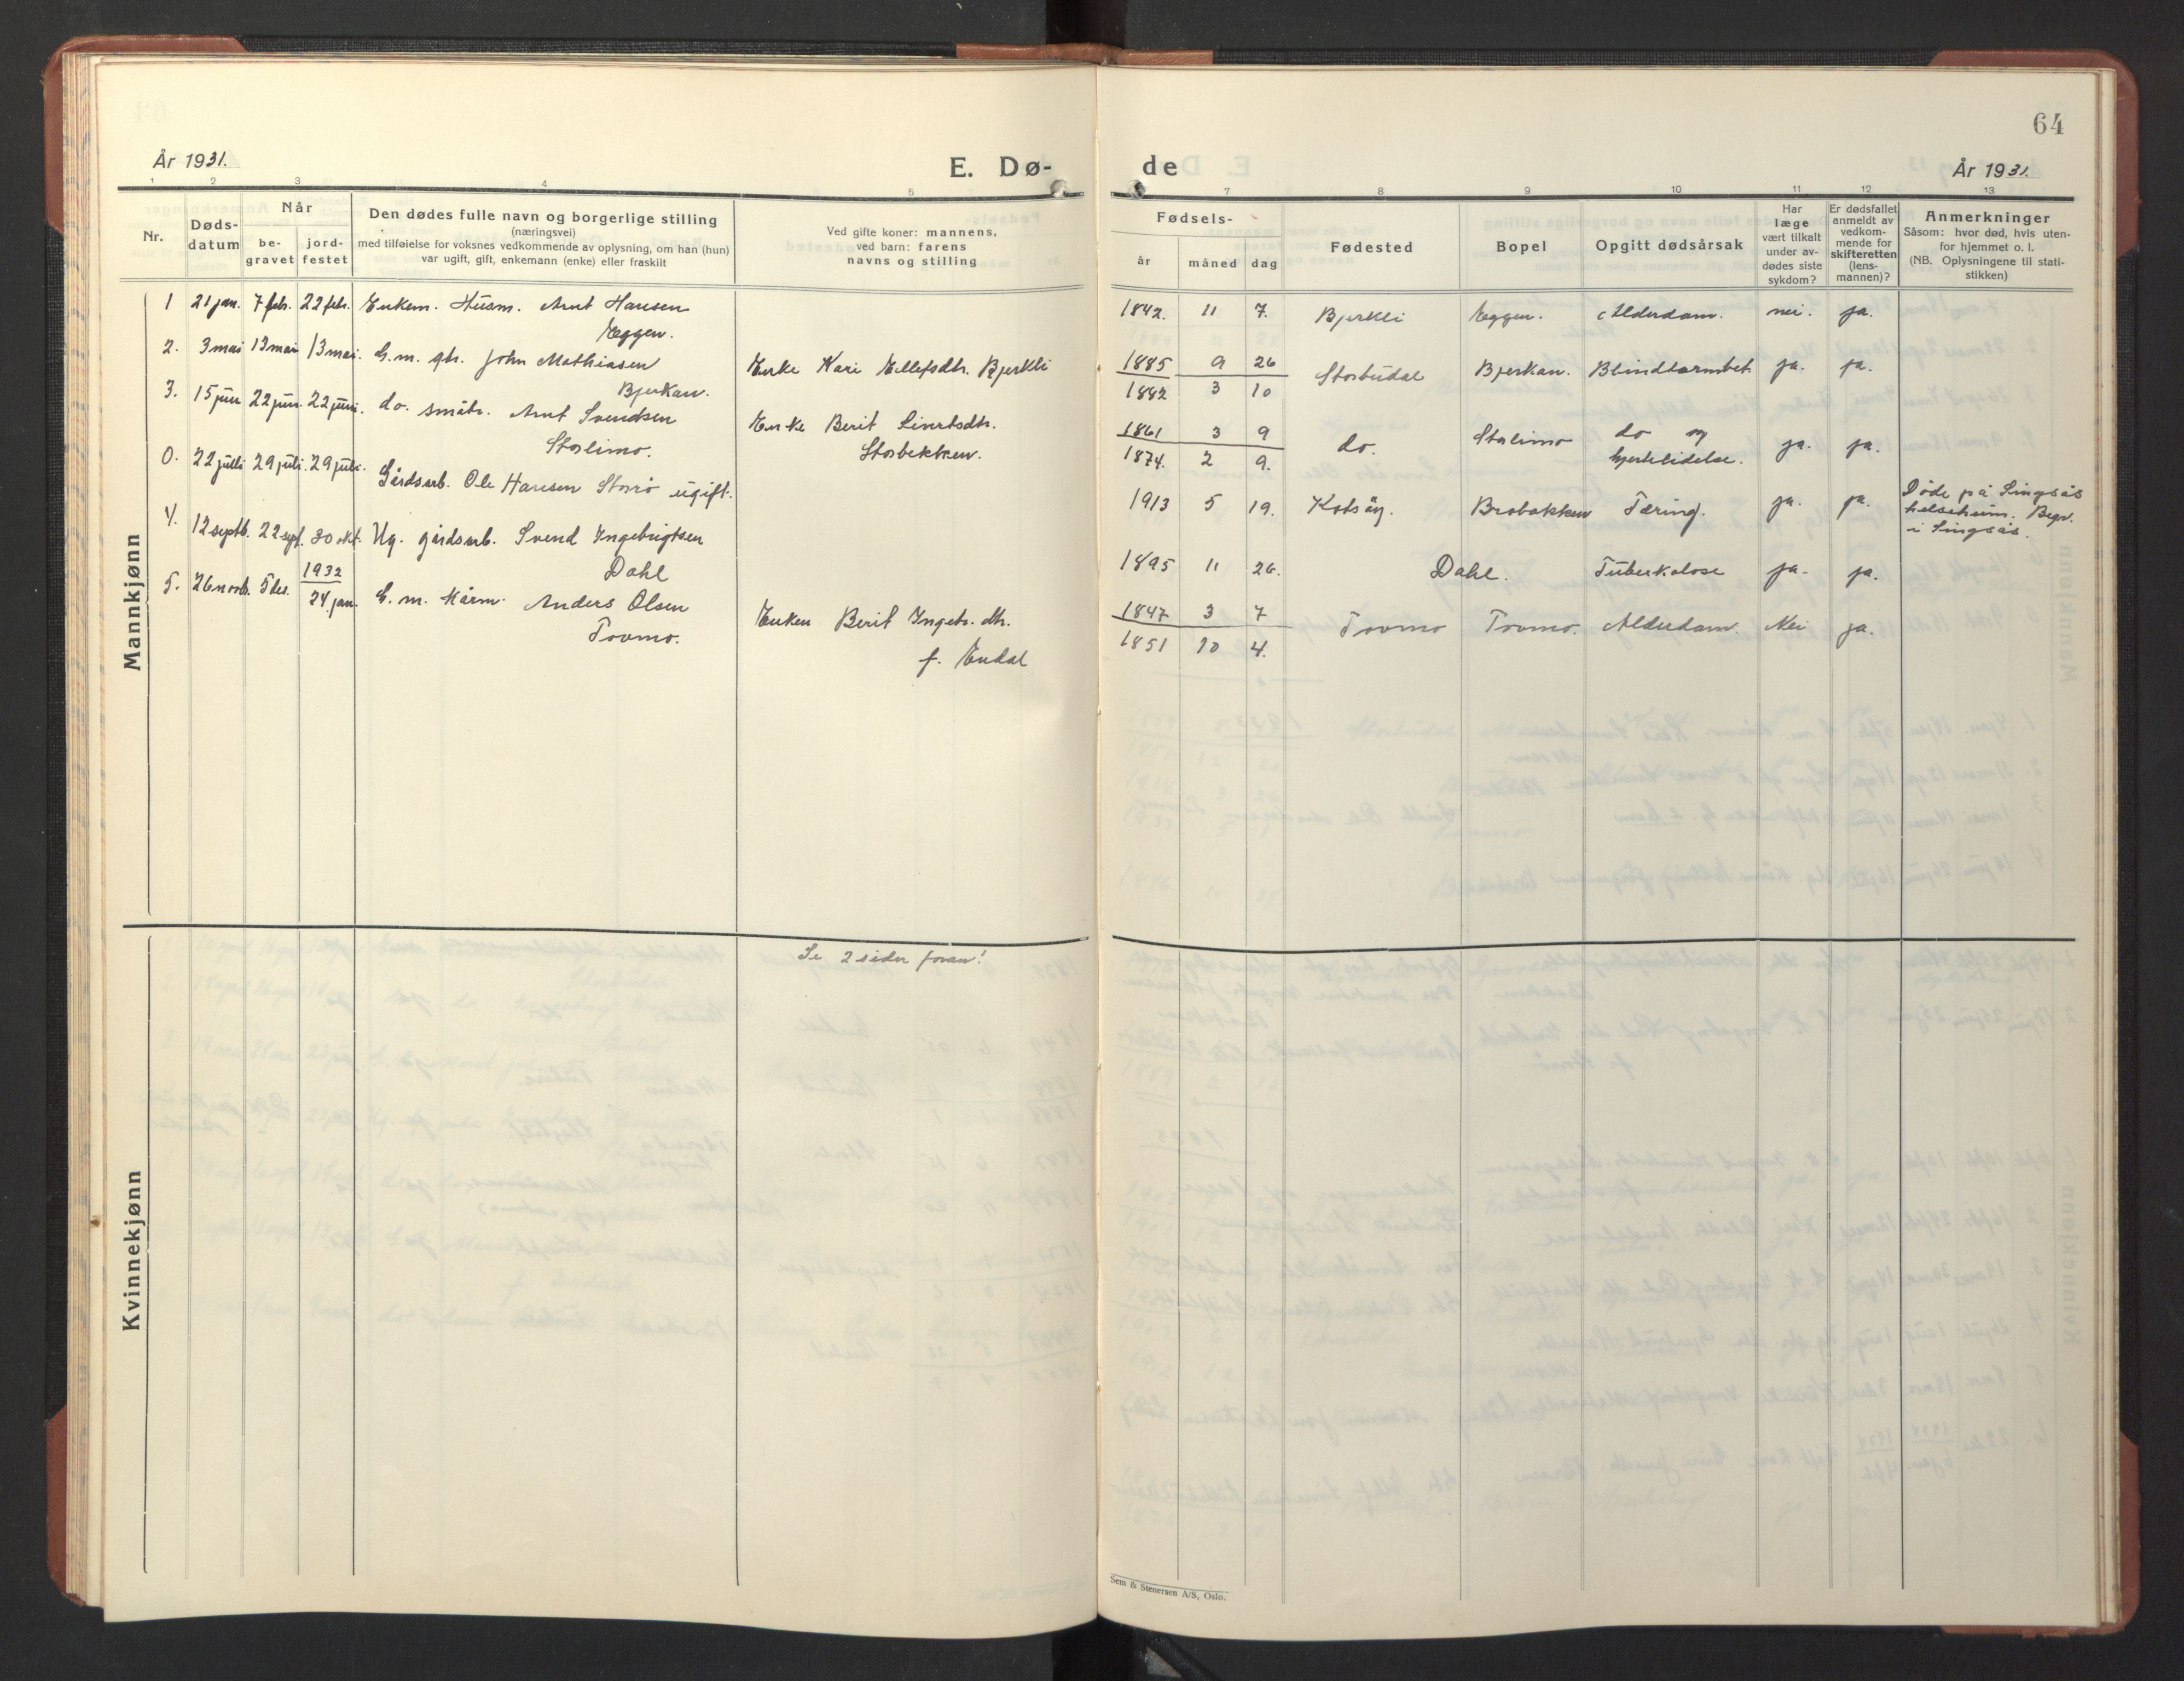 År 1931.
E. Dø-
1 2 3 4 5
Nr.
Døds-
datum
Når
be-
gravet
jord-
festet
Den dødes fulle navn og borgerlige stilling
(næringsvei)
med tilføielse for voksnes vedkommende av oplysning, om han (hun)
var ugift, gift, enkemann (enke) eller fraskilt
Ved gifte koner: mannens,
ved barn: farens
navns og stilling
Mannkjønn
1 21 jan. 7 feb. 22 feb. Enkem. Husm. Arnt Hansen
Eggen.
2. 3 mai 13 mai 13 mai. G.m. gbr. John Mathiasen
Bjerkan.
Enke Kari Ellefsdtr. Bjerkli
3. 15 juni 22 juni. 22 juni. do. småbr. Arnt Svendsen
Storlimo.
Enke Berit Sivertsdtr.
Storbekken.
0. 22 juli 29 juli. 29 juli. Gårdsarb. Ole Hansen Storrø ugift.
4. 12 septb. 22 sept. 30 okt. Ug. gårdsarb. Svend Ingebrigtsen
Dahl
5. 26 novb. 5 des. 1932
24 jan. G. m. kårm. Anders Olsen
Tovmo.
Enken Berit Ingebr. dtr.
f. Endal
Kvinnekjønn
Se 2 sider foran!
64
de
År 1931.
7 8 9 10 11 12 13
Fødsels-
år måned dag
Fødested
Bopel
Opgitt dødsårsak
Har
læge
vært tilkalt
under av-
dødes siste
sykdom?
Er dødsfallet
anmeldt av
vedkom-
mende for
skifteretten
(lens-
mannen)?
Anmerkninger
Såsom: hvor død, hvis uten-
for hjemmet o. l.
(NB. Oplysningene til stati-
stikken)
1842. 11 7. Bjerkli Eggen. Alderdom. nei. ja.
1885 9 26
1882 3 10
Storbudal Bjerkan. Blindtarmbet. ja. ja.
1861 3 9
1874. 2 9.
do. Storlimo do og
hjertelidelse. ja. ja.
1913 5 19. Kotsøy. Brobakken Tæring. ja. ja. Døde på Singsås
helseheim. Begr.
i Singsås.
1895 11 26. Dahl. Tuberkulose ja. ja.
1847 3 7
1851 10 4.
Tovmo Tovmo. Alderdom. Nei ja.
Sem & Stenersen A/S, Oslo.